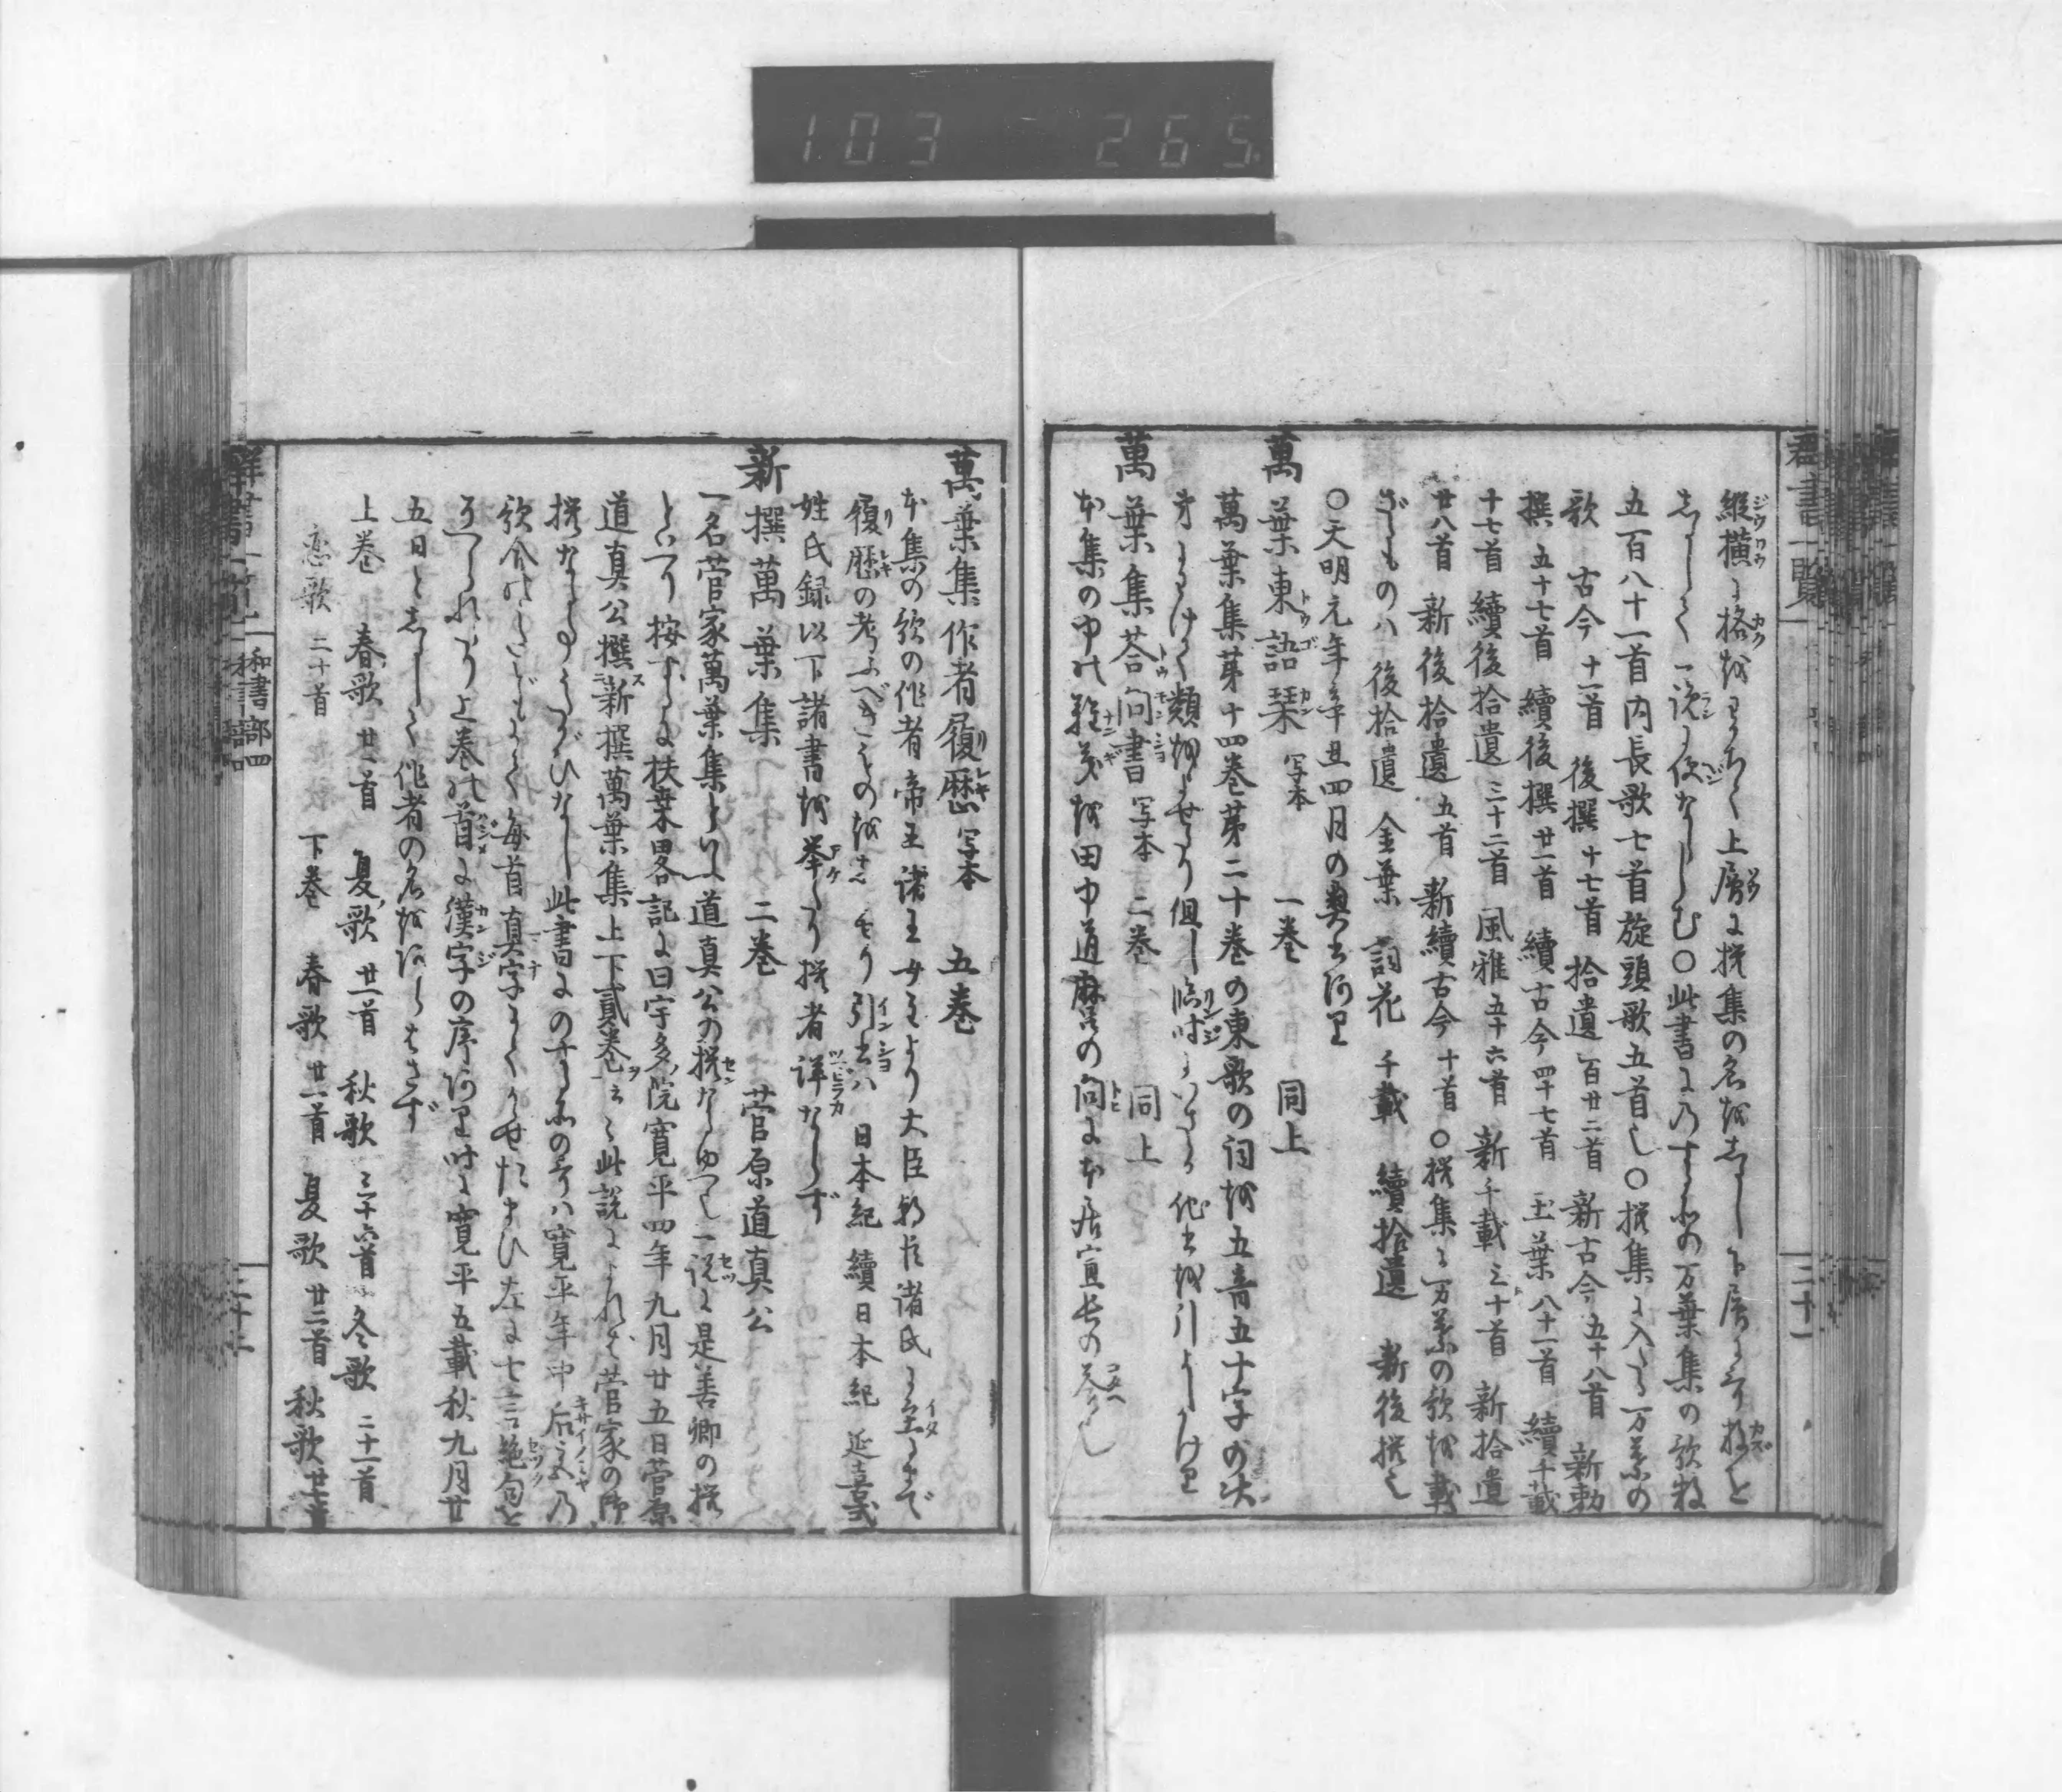 103 265
群書一覧
縦横に格をわかちて上層に撰集の名をしるし下層に哥数を
しるして一覧に便ならしむ〇此書にのする所の万葉集の歌数
五百八十一首内長歌七首旋頭歌五首也〇撰集に入たる万葉の
歌 古今十一首 後撰十七首 拾遺百廿二首 新古今五十八首 新勅
撰五十七首 續後撰廿一首 續古今四十七首 玉葉八十一首 續千載
十七首 續後拾遺三十二首 風雅五十六首 新千載三十首 新拾遺
廿八首 新後拾遺五首 新續古今十首 〇撰集に万葉の歌を載
ざるものハ 後拾遺 金葉 詞花 千載 續拾遺 新後撰也
〇天明元年辛丑四月の奥書あり
萬葉東語栞 写本 一巻 同上
萬葉集第十四巻第二十巻の東歌の詞を五音五十字の次
第にわけて類をよせたり但し臨時にハ他書を引ようけり
萬葉集荅問書 写本 二巻 同上
本集の中の難義を田中道麿の問に本居宣長の答也
二十一
萬葉集作者履歴 写本 五巻
本集の歌の作者帝王諸王女王より大臣朝臣諸氏に至るまで
履歴の考ふべきものを載せたり引書ハ 日本紀 續日本紀 延喜式
姓氏録以下諸書を挙たり撰者詳ならず
新撰萬葉集 二巻 菅原道真公
一名菅家萬葉集といふ道真公の撰なるゆへ也一説に是善卿の撰
といへり按するに扶桑畧記に曰宇多院寛平四年九月廿五日菅原
道真公撰新撰萬葉集上下貳巻云々此説によれば菅家の御
撰なる事うたがひなし此書にのする所の哥ハ寛平年中后宮の
歌合のうたどもにて毎首真字にてかゝせたまひ左に七言絶句を
そへられたり上巻の首に漢字の序あり時に寛平五載秋九月廿
五日としるして作者の名をあらはさず
上巻 春歌廿一首 夏歌廿一首 秋歌三十六首 冬歌二十一首
恋歌二十首 下巻 春歌廿一首 夏歌廿二首 秋歌廿
群書一覧 和書部四
二十二